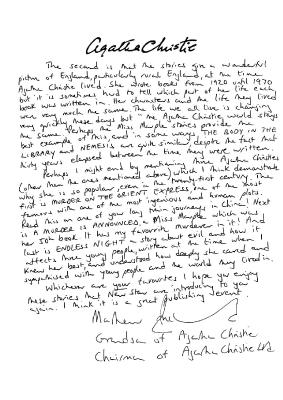 Agatha Christie
The second is that the stories give a wonderful
picture of England, particularly rural England, at the time
Agatha Christie lived. She wrote books from 1920 until 1970
but it is sometimes hard to tell which part of her life each
book was written in. Her characters and the life they lived
were very much the same. The life we all live is changing
very quickly these days but in the Agatha Christie world stays
the same. Perhaps the Miss Marple stories provide the
best example of this, and in some ways THE BODY IN THE
LIBRARY and NEMESIS are quite similar despite the fact that
thirty years elapsed between the time they were written.
Perhaps I might end by mentioning three Agatha Christies
(other than the ones mentioned above) which I think demonstrate
why she is so popular, even in the twenty-first century. The
first is MURDER ON THE ORIENT EXPRESS, one of the most
famous with one of the most ingenious and human plots.
Read this on one of your long train journeys in China! Next
A MURDER IS ANNOUNCED, a Miss Marple which was
her 50th book. It has my favourite murderer in it! And
last is ENDLESS NIGHT a story about evil and how it
affects three young people, written at the time when I
knew her best, and understood how deeply she cared and
sympathised with young people and the world they lived in.
Whichever are your favourites I hope you enjoy
these stories that New Star are introducing to you
again. I think it is a great publishing event.
Mathew
Grandson of Agatha Christie
Chairman of Agatha Christie Ltd